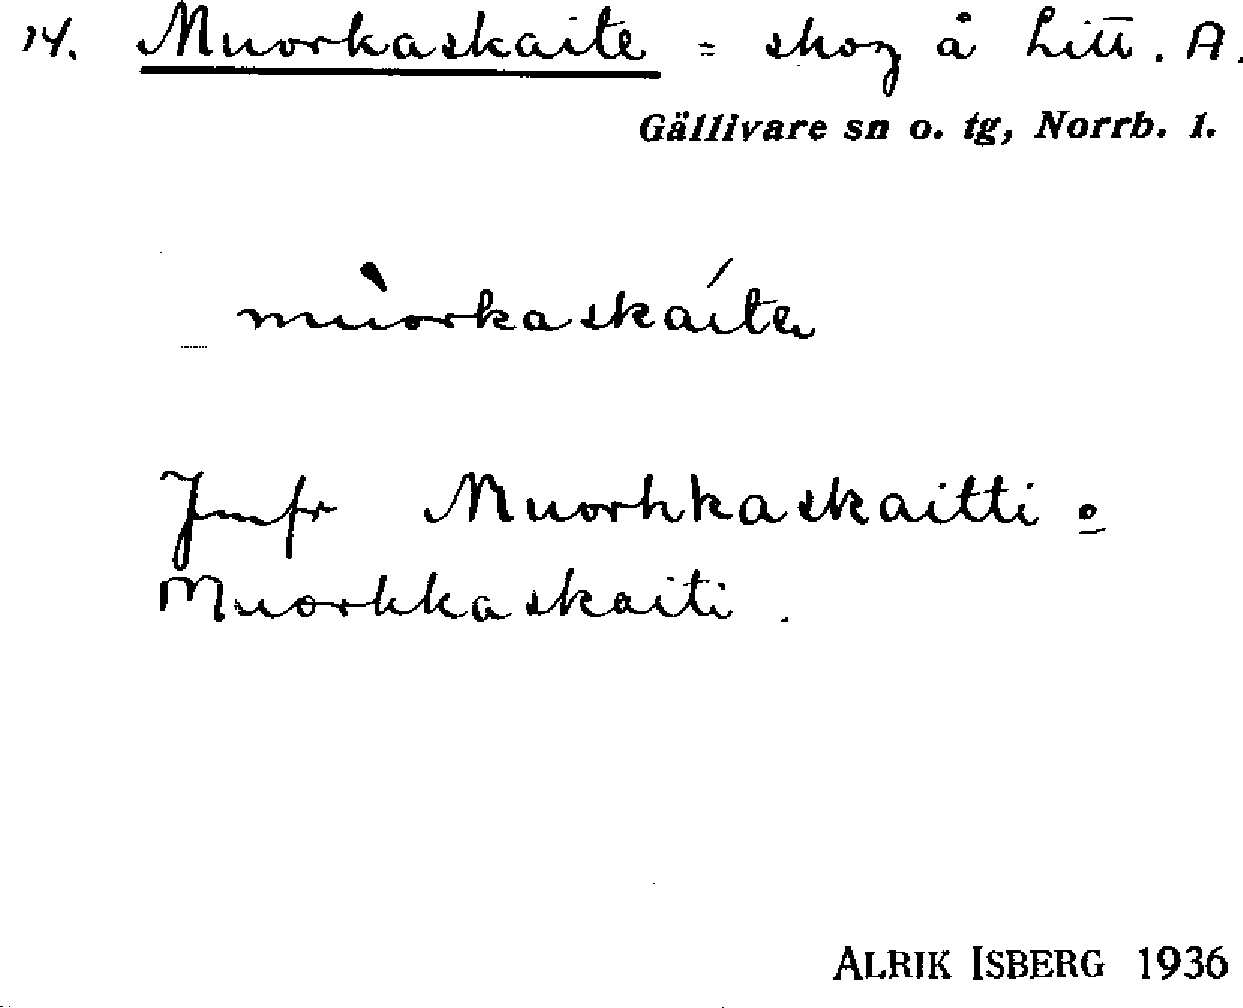 14. Muorkaskaite = skog å Litt. A.
Gällivare sn o. tg, Norrb. l.
mùorkaskáite
Jmfr Muorkkaskaitti o
Muorkkaskaiti.
ALRIK ISBERG 1936